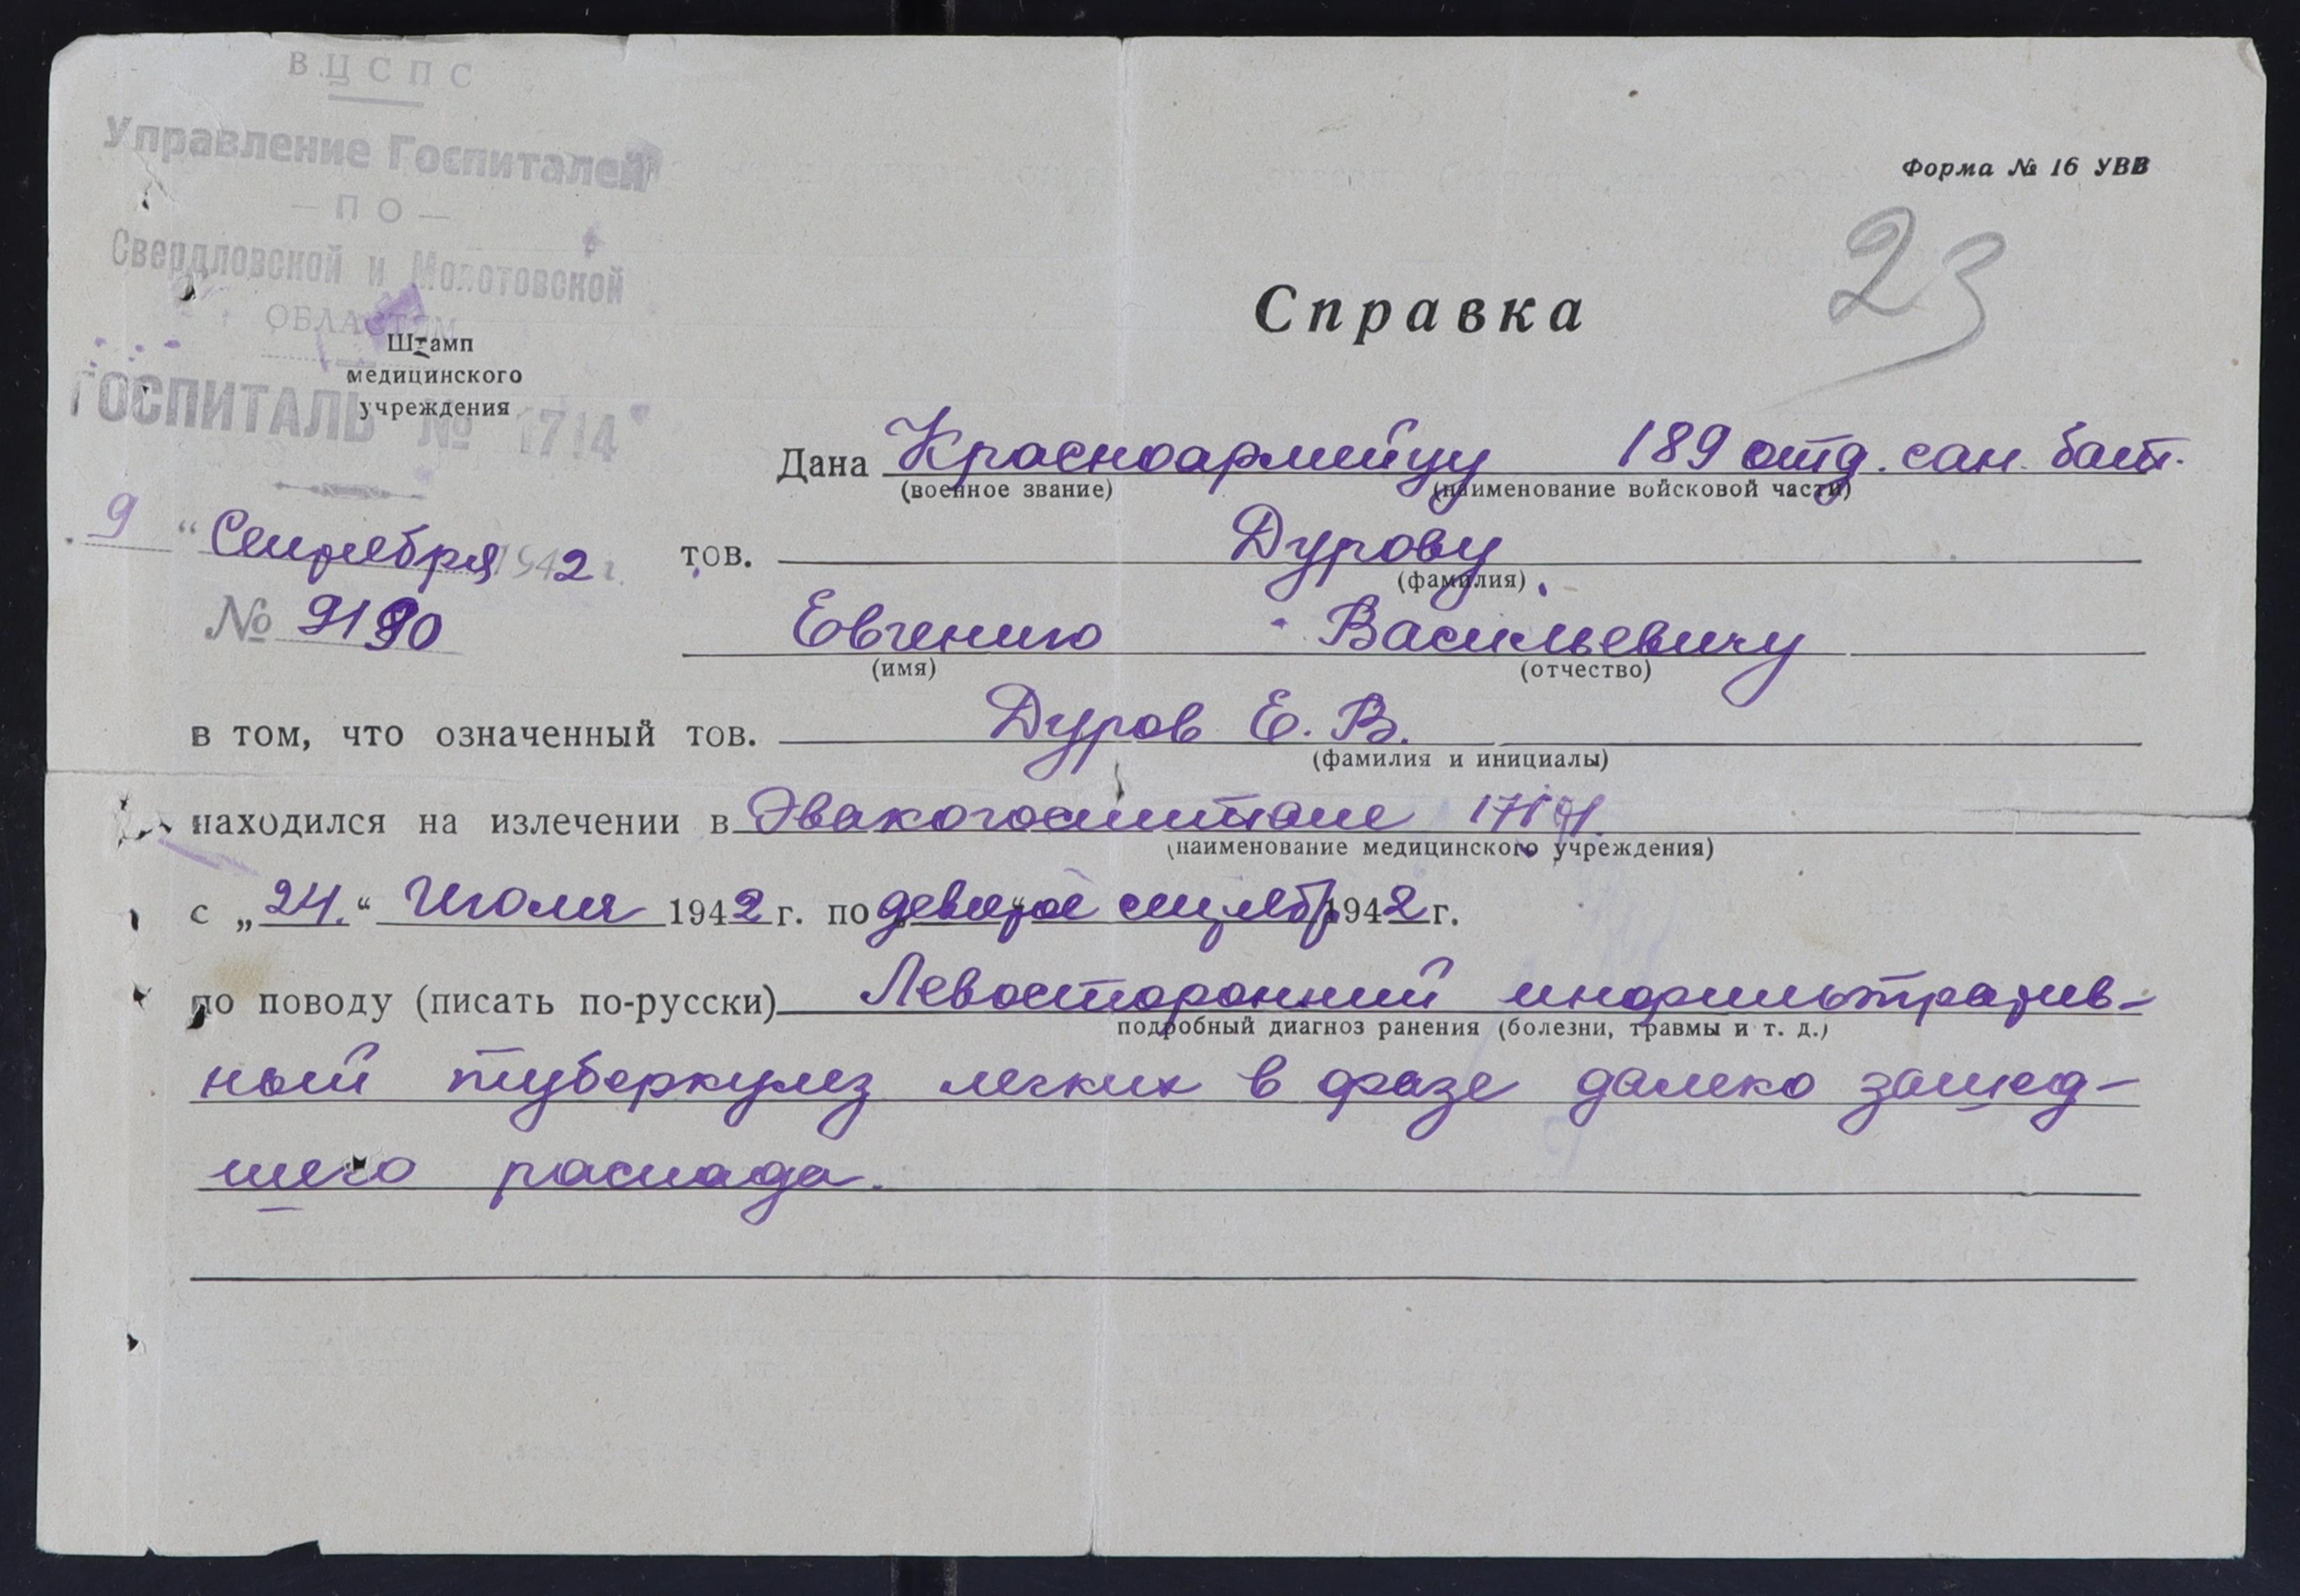 ВЦСПС
Управление Госпиталей
— ПО —
Свердловской и Молотовской
ОБЛАСТЯМ
ГОСПИТАЛЬ № 1714
Штамп
медицинского
учреждения
Форма № 16 УВВ
23
Справка
„9“ Сентября 1942 г.
№ 9190
Дана Красноармейцу 189 отд. сан. бат.
(военное звание) (наименование войсковой части)
тов. Дурову
(фамилия)
Евгению Васильевичу
(имя) (отчество)
в том, что означенный тов. Дуров Е. В.
(фамилия и инициалы)
находился на излечении в Эвакогоспитале 1714
(наименование медицинского учреждения)
с „24.“ Июля 1942 г. по девятое сентябр 1942 г.
по поводу (писать по-русски) Левосторонний инфильтратив-
подробный диагноз ранения (болезни, травмы и т. д.)
ный туберкулез легких в фазе далеко зашед-
шего распада.